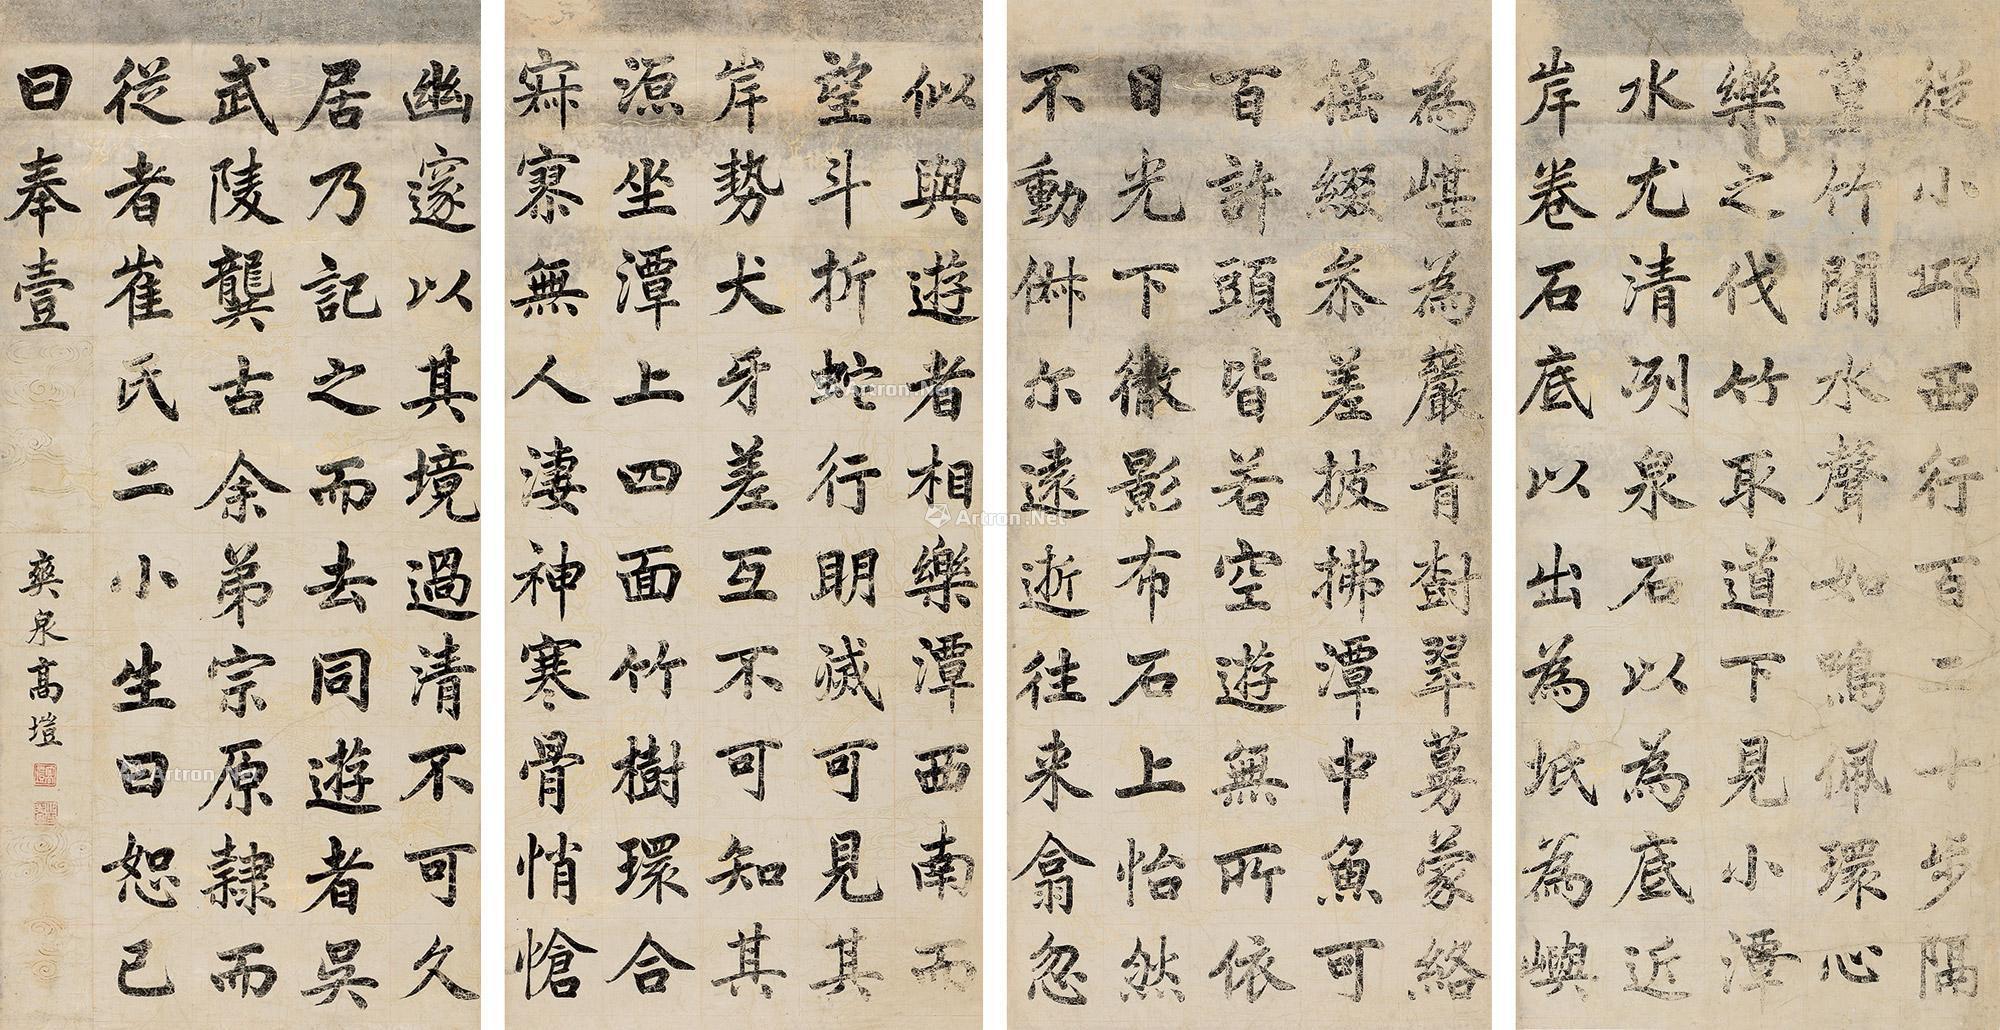 從小邱西行百二十步隔
篁竹聞水聲如鳴佩環心
樂之伐竹取道下見小潭
水尤清冽泉石以為底近
岸卷石底以出為坻為嶼
為嵁為巖青樹翠蔓蒙絡
搖綴參差披拂潭中魚可
百許頭皆若空遊無所依
日光下徹影布石上怡然
不動俶尔遠逝往来翕忽
似與遊者相樂潭西南而
望斗折蛇行明滅可見其
岸勢犬牙差互不可知其
源坐潭上四面竹樹環合
寂寥無人淒神寒骨悄愴
幽邃以其境過清不可久
居乃記之而去同遊者吳
武陵龔古余弟宗原隸而
從者崔氏二小生曰恕己
曰奉壹
爽泉高塏
Artron.Net
Artron.Net
Artron.Net